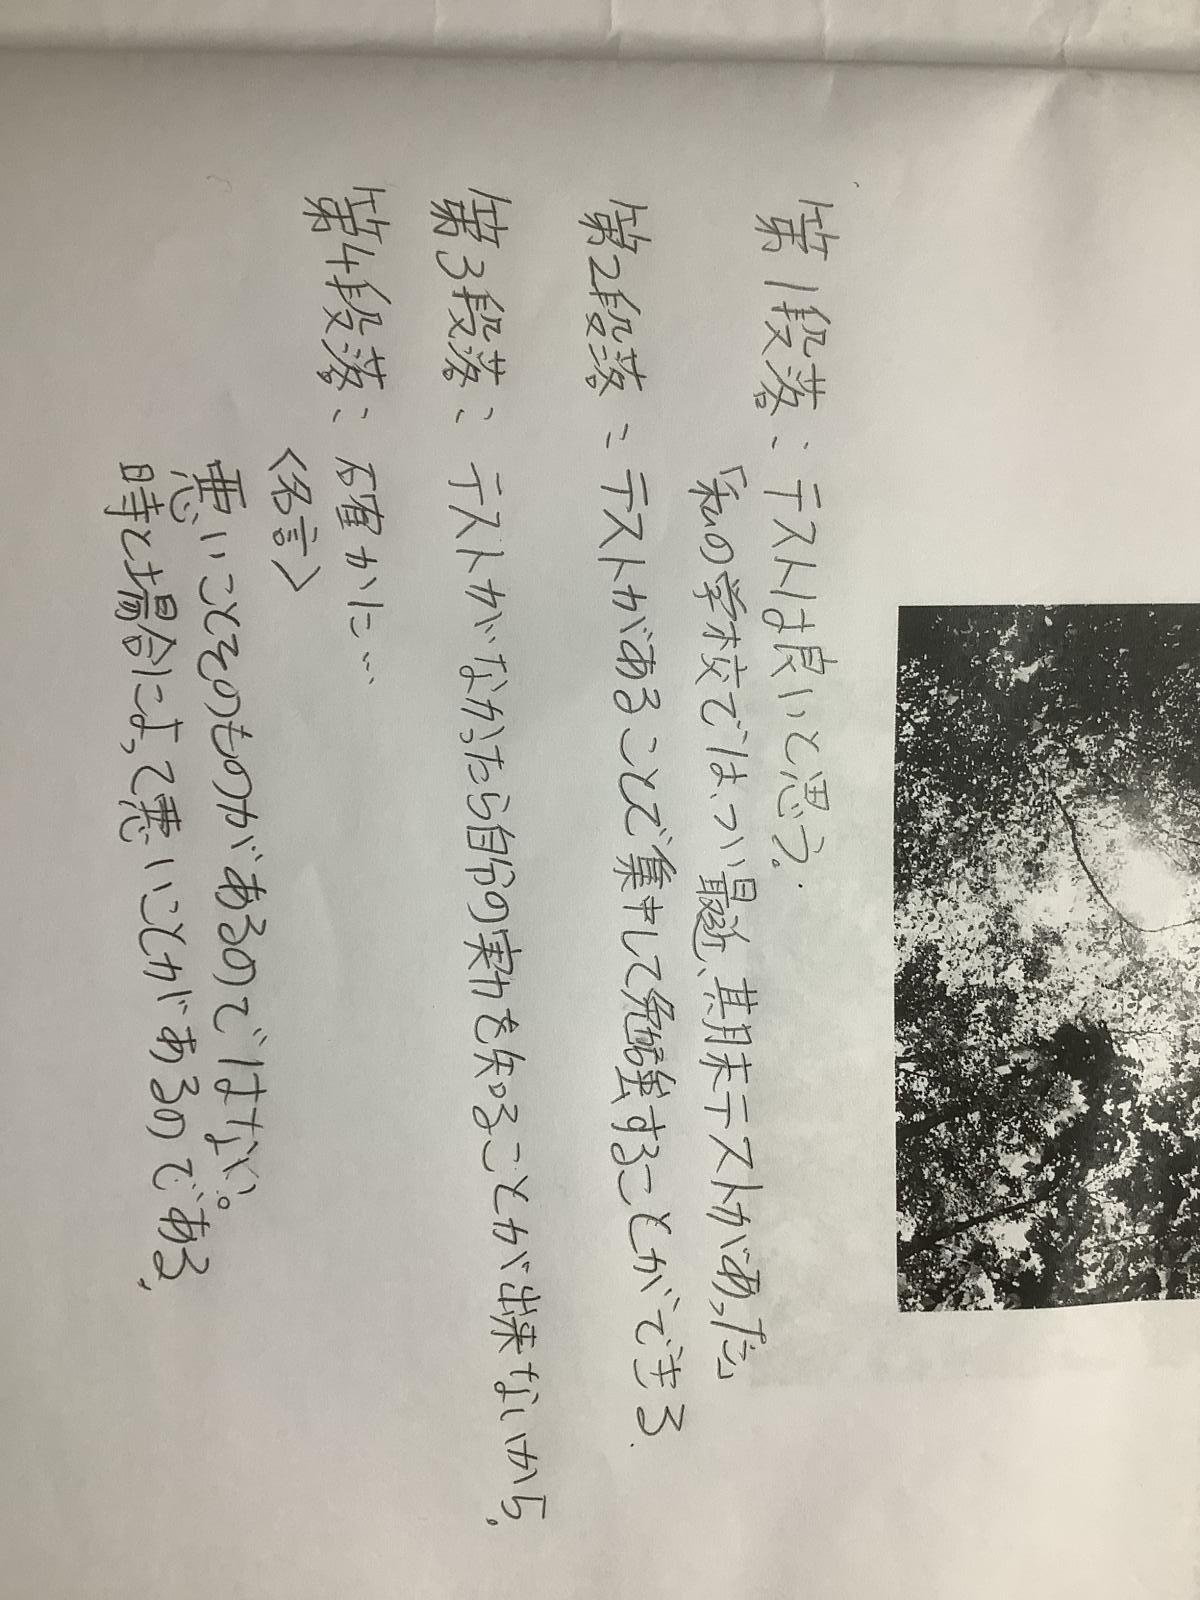 第1段落：テストは良いと思う。
「私の学校では、つい最近、期末テストがあった」
第2段落：テストがあることで集中して勉強することができる.
第3段落：テストがなかったら自分の実力を知ることが出来ないから.
第4段落：確かに…
〈名言〉
悪いことそのものがあるのではない。
時と場合によって悪いことがあるのである.